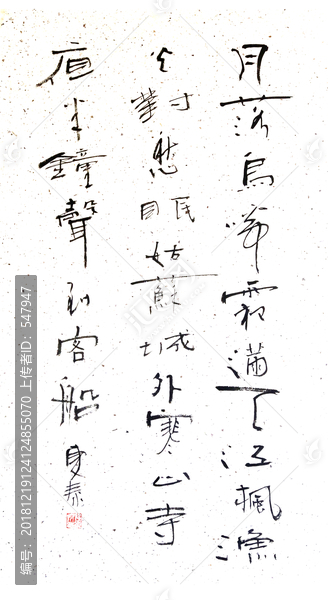 月落烏啼霜滿天江楓漁
火對愁眠姑蘇城外寒山寺
夜半鐘聲到客船
编号：20181219124124855070 上传者ID：547947